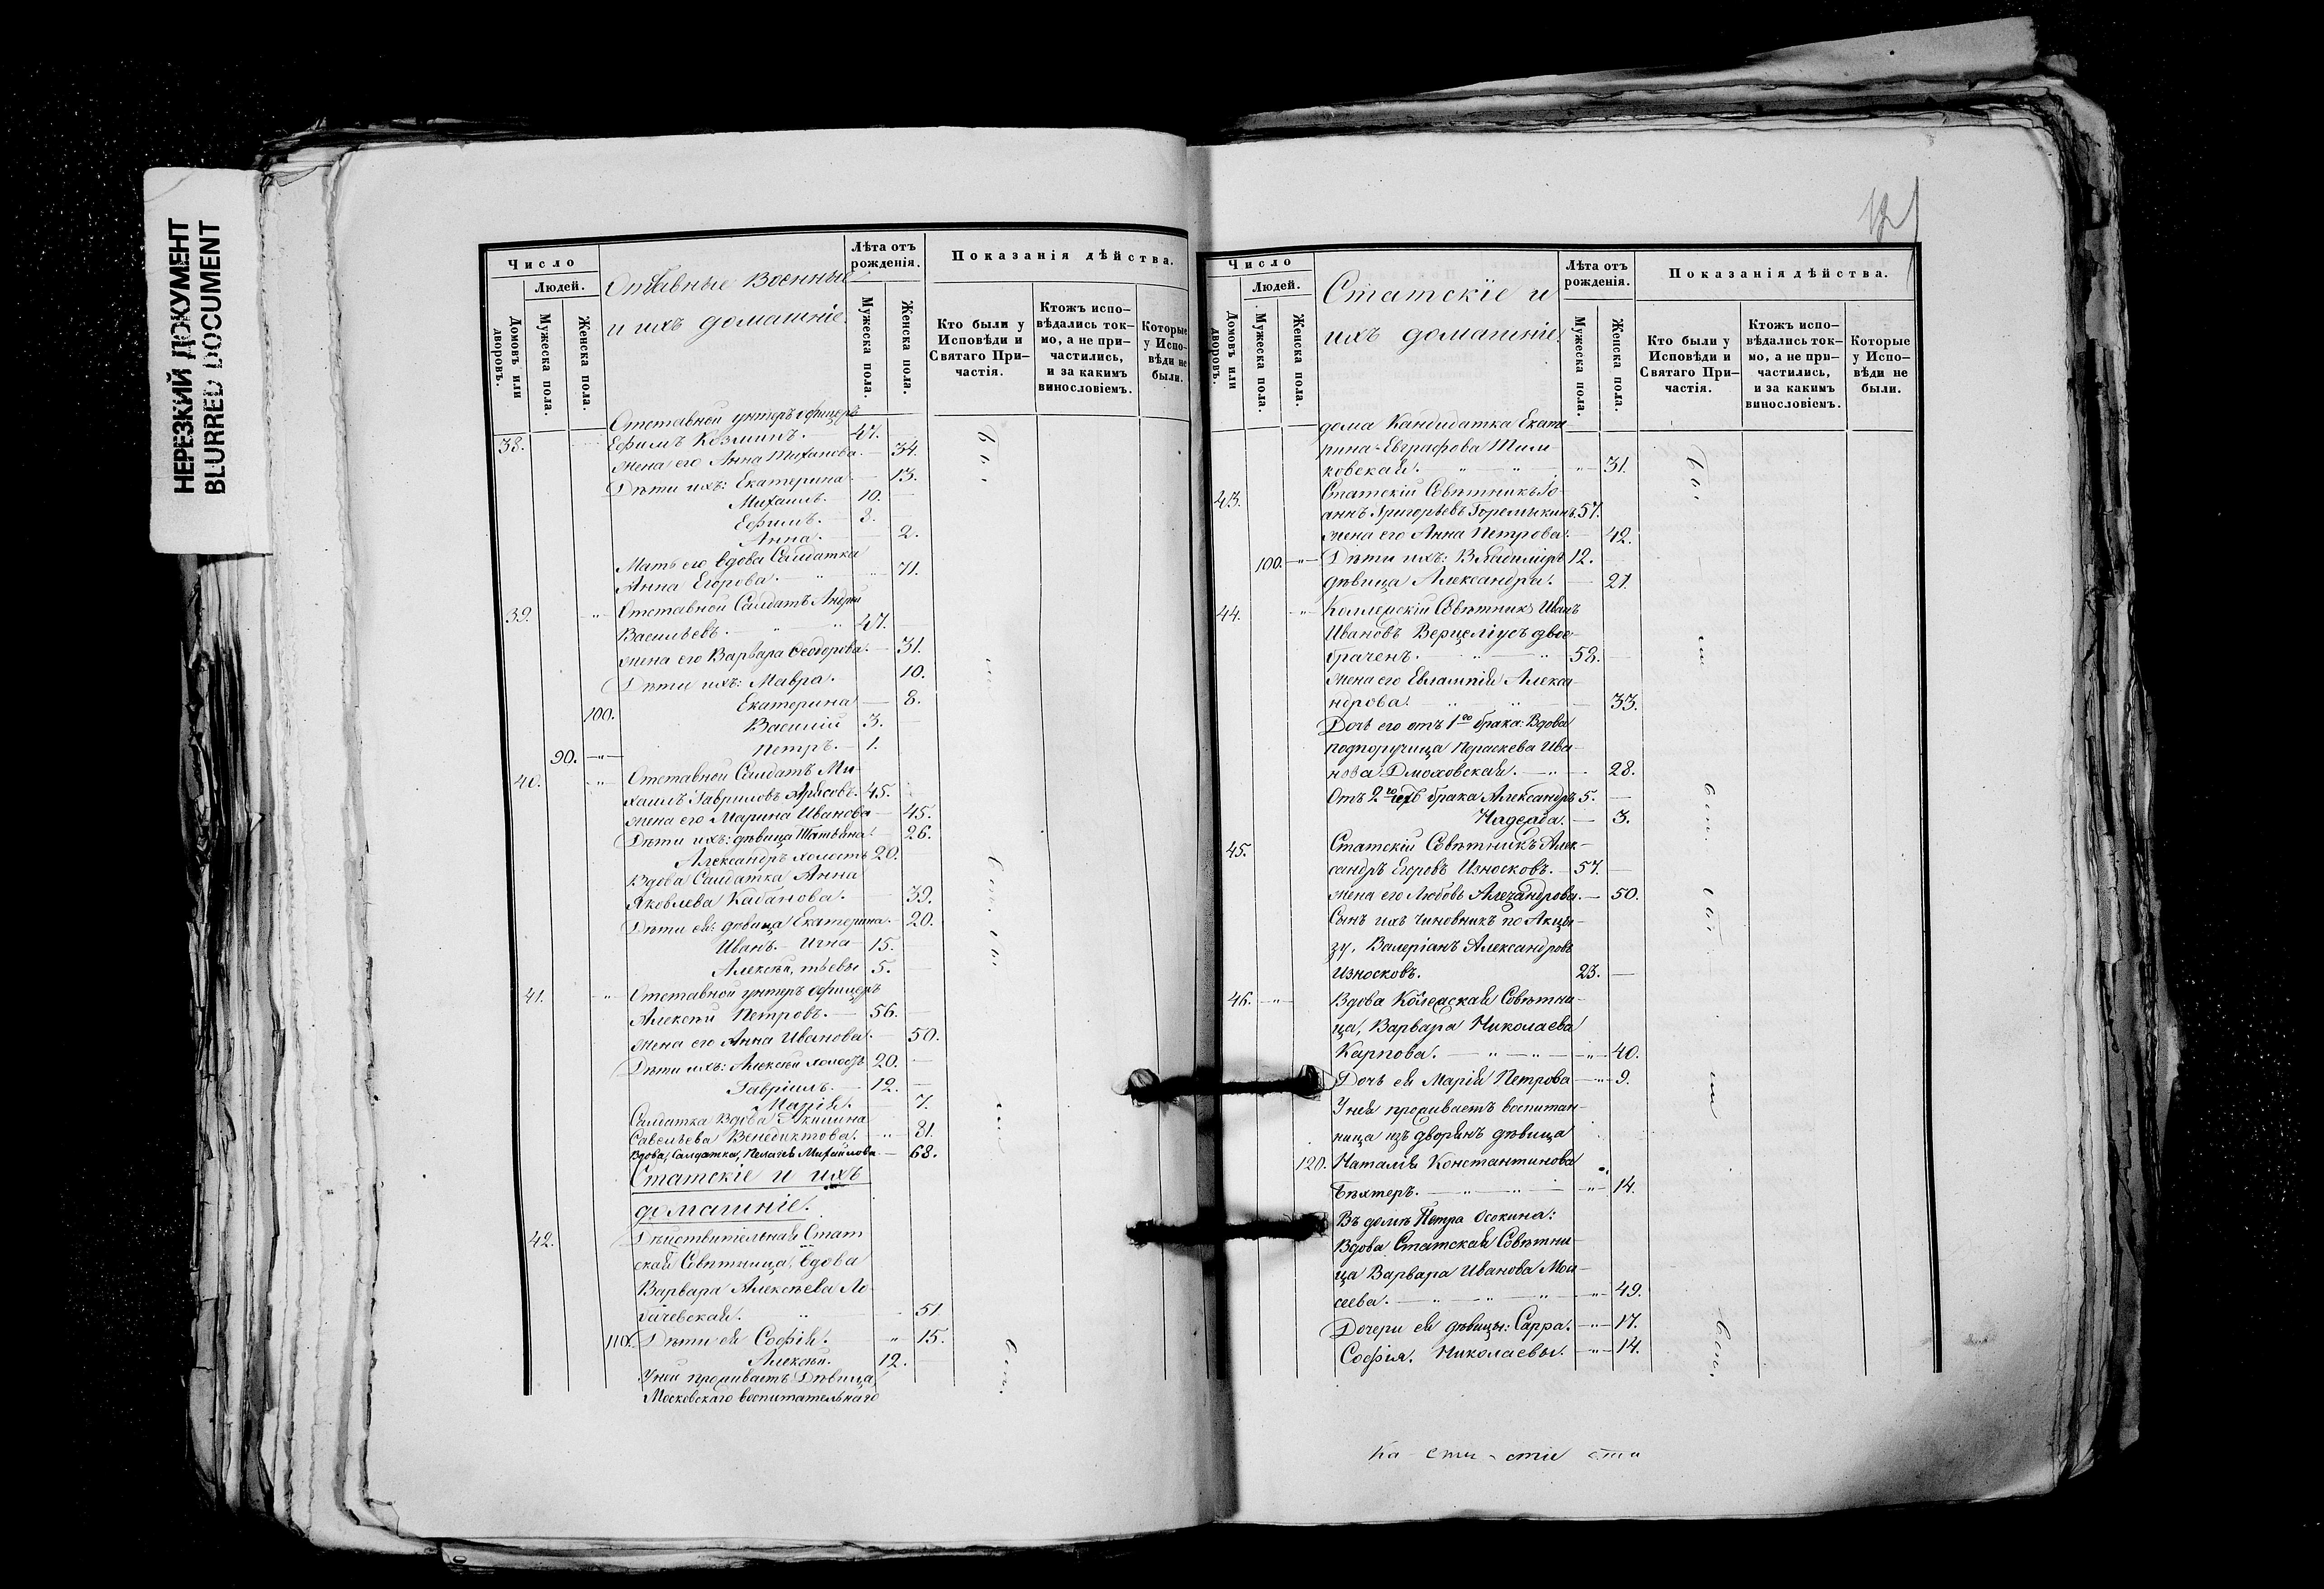 НЕРЕЗКИЙ ДОКУМЕНТ
BLURRED DOCUMENT
Число
Людей.
Домовъ или дворовъ.
Мужеска пола.
Женска пола.
Отставные Военные
и ихъ домашніе.
Лѣта отъ рожденія.
Мужеска пола.
Женска пола.
Показанія дѣйства.
Кто были у Исповѣди и Святаго При-частія.
Ктожъ испо-вѣдались ток-мо, а не при-частились, и за какимъ винословіемъ.
Которые у Испо-вѣди не были.
Отставной унтеръ офицеръ
38. Ефимъ Козминъ. 47.
жена его Анна 34.
Дѣти ихъ: Екатерина 13.
Михаилъ. 10.
Ефимъ. 3.
Анна. 2.
Мать его вдова Салдатка
Анна Егорова. 71.
39. " Отставной Салдатъ Андрей
Васильевъ. 47.
жена его Варвара Ѳеодорова. 31.
Дѣти ихъ: Мавра. 10.
100. Екатерина 8.
Василій 3.
90. " Петръ. 1.
40. " Отставной Салдатъ Ми-
хаилъ Гавриловъ 45.
жена его Марина Иванова 45.
Дѣти ихъ: дѣвица Татьяна. 26.
Александръ холостъ 20.
Вдова Салдатка Анна
Яковлева Кабанова. 39.
Дѣти ея: дѣвица Екатерина. 20.
Иванъ. Игна- 15.
Алексѣй, тьевы 5.
41. " Отставной унтеръ офицеръ
Алексѣй Петровъ. 56.
жена его Анна Иванова. 50.
Дѣти ихъ: Алексѣй холостъ 20.
Гавріилъ. 12.
Марія. 7.
Салдатка Вдова Акилина
Савельева Венедиктова. " 81.
Вдова, Салдатка, Пелагея Михайлова 68.
Статскіе и ихъ
домашніе.
42. Дѣйствительная Стат
ская Совѣтница, вдова
Варвара Алексѣева Ло-
бачевская. 51.
110. Дѣти ея Софія. " 15.
Алексѣй. 12.
У ней проживаетъ Дѣвица
Московскаго воспитательнаго
Число
Людей.
Домовъ или дворовъ.
Мужеска пола.
Женска пола.
Статскіе и
ихъ домашніе.
Лѣта отъ рожденія.
Мужеска пола.
Женска пола.
Показанія дѣйства.
Кто были у Исповѣди и Святаго При-частія.
Ктожъ испо-вѣдались ток-мо, а не при-частились, и за какимъ винословіемъ.
Которые у Испо-вѣди не были.
дома Кандидатка Екате
рина Евграфова
31.
43. Статскій Совѣтникъ Іо-
аннъ Григорьевъ Горемыкинъ. 57.
жена его Анна Петрова. 42.
100. " Дѣти ихъ: Владиміръ 12.
дѣвица Александра. 21.
44. " Коллежскій Совѣтникъ Иванъ
Ивановъ Верцеліусъ двое-
браченъ. 58.
жена его Евлампія Алекса-
ндрова. 33.
Дочь его отъ 1го брака: Вдова
подпоручица Параскева Ива-
нова Дмоховская. 28.
Отъ 2го брака Александръ 5.
Надежда. 3.
45. Статскій Совѣтникъ Алек-
сандръ Егоровъ Износковъ. 57.
жена его Любовь Александрова. 50.
Сынъ ихъ чиновникъ по Акци-
зу, Валеріанъ Александровъ
Износковъ. 23.
46. " Вдова Колежская Совѣтни-
ца, Варвара Николаева
Карпова. " 40.
Дочь ея Марія Петрова " 9.
У нея проживаетъ воспитан-
ница изъ дворянъ дѣвица
120. Наталія Константинова
Бехтеръ. " 14.
Въ домѣ Петра Осокина:
Вдова Статская Совѣтни-
ца Варвара Иванова Мои-
сеева. " 49.
Дочери ея дѣвицы: Сарра. " 17.
Софія. Николаевы. " 14.